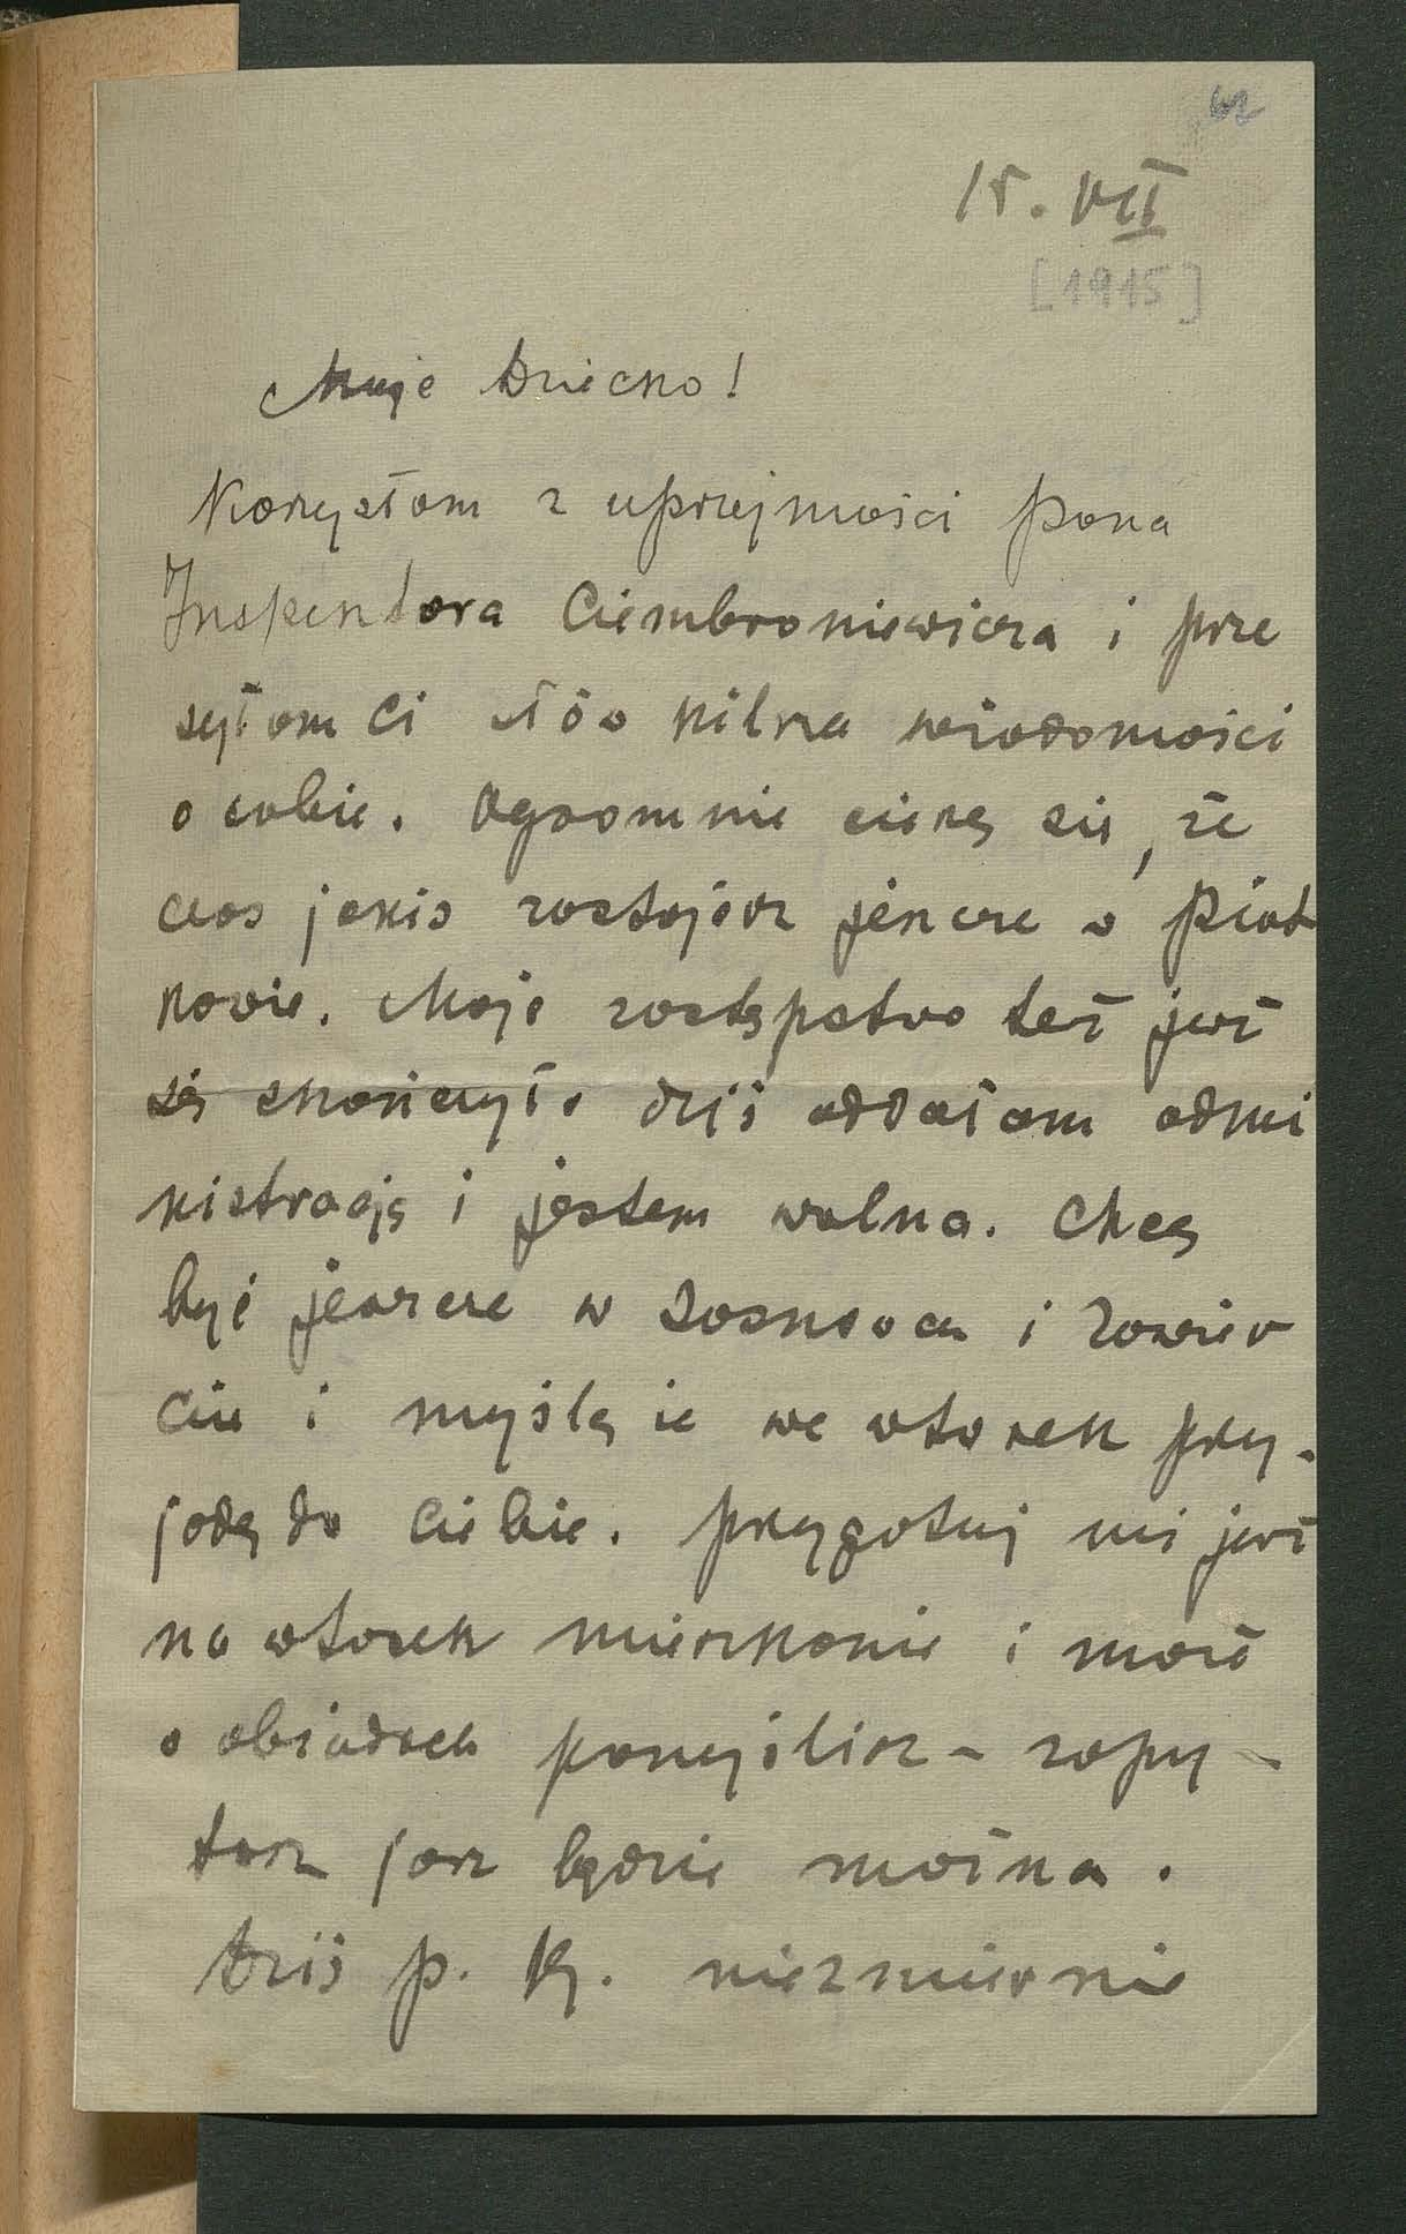 62
15. VII
[1915]
Moje Dziecko!
Korzystam z uprzejmości Pana
Inspektora Ciembroniewicza i prze
syłam Ci słów kilka wiadomości
o sobie. Ogromnie cieszę się, że
czas jakiś zostajesz jeszcze w Piot
kowie. Moje zastępstwo też już
się skończyło dziś oddałam admi
nistrację i jestem wolna. Chcę
być jeszcze w Sosnowcu i Zawier
ciu i myślę że we wtorek przy-
jadę do Ciebie. Przygotuj mi już
na wtorek mieszkanie i może
o obiadach pomyślisz - zapy-
tasz jeśli będzie można.
Dziś p. Kj. niezmiernie